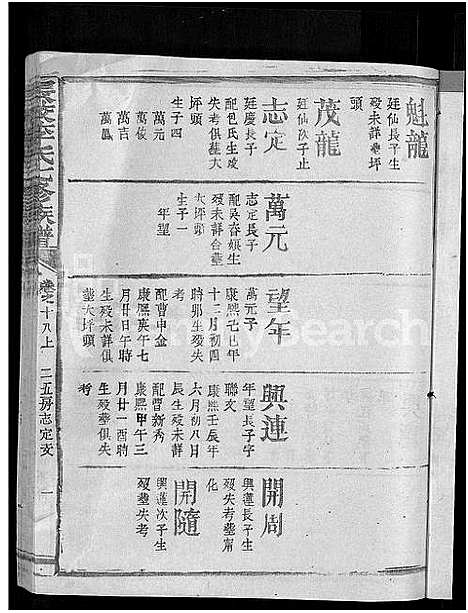 魁龍
廷仙長子生
歿未詳塟坪
頭
茂龍
廷仙次子止
志定
廷慶長子
配包氏生歿
失考俱塟大
坪頭
生子四
萬元
萬俊
萬吉
萬鳳
萬元
志定長子
配吳春娘生
歿未詳合塟
大坪頭
生子一
年望
望年
萬元子
康熙己巳年
十二月初四
時卯生歿失
考
配曹申金
康熙庚午七
月廿日午時
生歿未詳俱
塟大坪頭
興連
年望長子字
聯文
康熙壬辰年
六月初八日
辰生歿未詳
配曾新秀
康熙甲午三
月廿一酉時
生歿塟俱失
考
開周
興蓮長子生
歿失考塟甯
化
開隨
興蓮次子生
歿塟失考
氏族譜
卷之十八上
二五房志定支
一